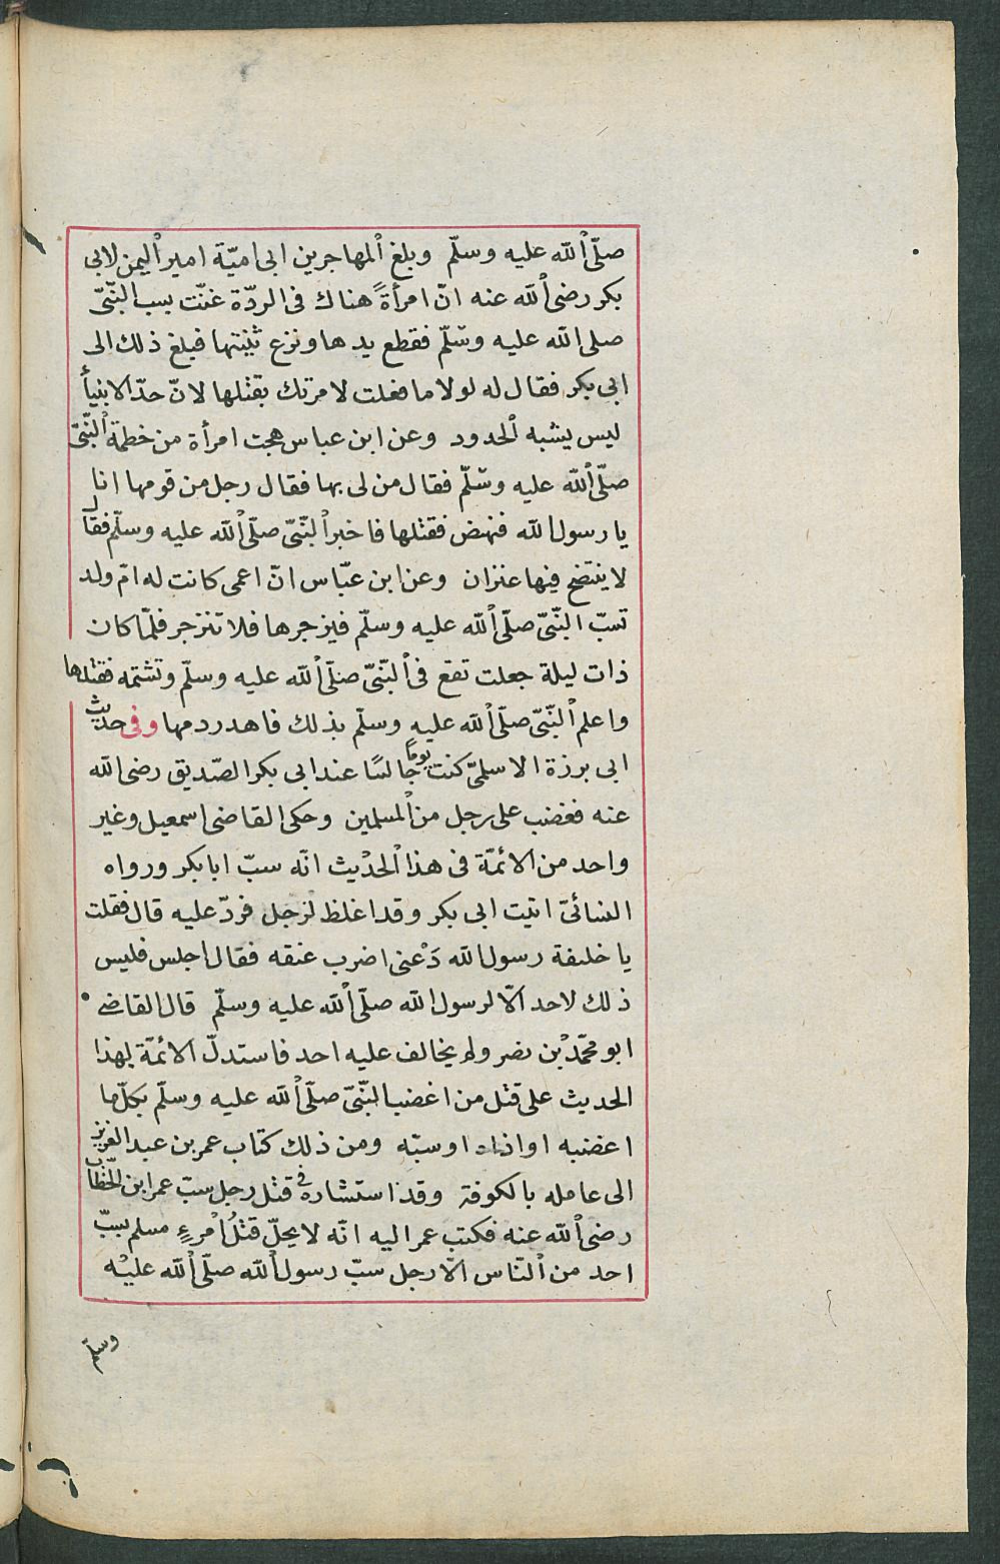 صلّى الله عليه وسلّم وبلغ المهاجر بن ابى اميّة امير اليمن لابى
بكر رضى الله عنه انّ امرأةً هناك فى الردّة غنّت بسب النّبىّ
صلى الله عليه وسّلّم فقطع يدها ونزع ثنيتها فبلغ ذلك الى
ابى بكر فقال له لولا ما فعلت لامرتك بقتلها لانّ حدّ الانبيأ
ليس يشبه الحدود وعن ابن عباس هجت امرأة من خطمة النّبىّ
صلّى الله عليه وسّلّم فقال من لى بها فقال رجل من قومها انا
يا رسول الله فنهض فقتلها فاخبر النّبىّ صلّى الله عليه وسلّم فقال
لا ينتضح فيها عنزان وعن ابن عبّاس انّ اعمى كانت له امّ ولد
تسبّ النّبىّ صلّى الله عليه وسلّم فيزجرها فلا تنزجر فلمّا كان
ذات ليلة جعلت تقع فى النّبىّ صلّى الله عليه وسلّم وتشتمه فقتلها
واعلم النّبىّ صلّى الله عليه وسلّم بذلك فاهدر دمها وفى حديث
ابى برزة الاسلمىّ كنت يومًا جالسًا عند ابى بكر الصّديق رضى الله
عنه فغضب على رجل من المسلمين وحكى القاضى اسمعيل وغير
واحد من الائمّة فى هذا الحديث انّه سبّ ابا بكر ورواه
النسائىّ اتيت ابى بكر وقد اغلظ لرجل فردّ عليه قال فقلت
يا خليفة رسول الله دَعْنى اضرب عنقه فقال اجلس فليس
ذلك لاحد الّا لرسول الله صلّى الله عليه وسلّم قال القاضى
ابو محمّد بن نصر ولم يخالف عليه احد فاستدلّ الائمّة بهذا
الحديث على قتل من اغضب النّبىّ صلّى الله عليه وسلّم بكلّ ما
اغضبه او اذاه او سبّه ومن ذلك كتاب عمر بن عبد العزيز
الى عامله بالكوفة وقد استشاره فى قتل رجل سبّ عمر ابن الخّطاب
رضى الله عنه فكتب عمر اليه انّه لا يحلّ قتلُ امرءٍ مسلم بسبّ
احد من النّاس الّا رجل سبّ رسول الله صلّى الله عليْه
وسلّم